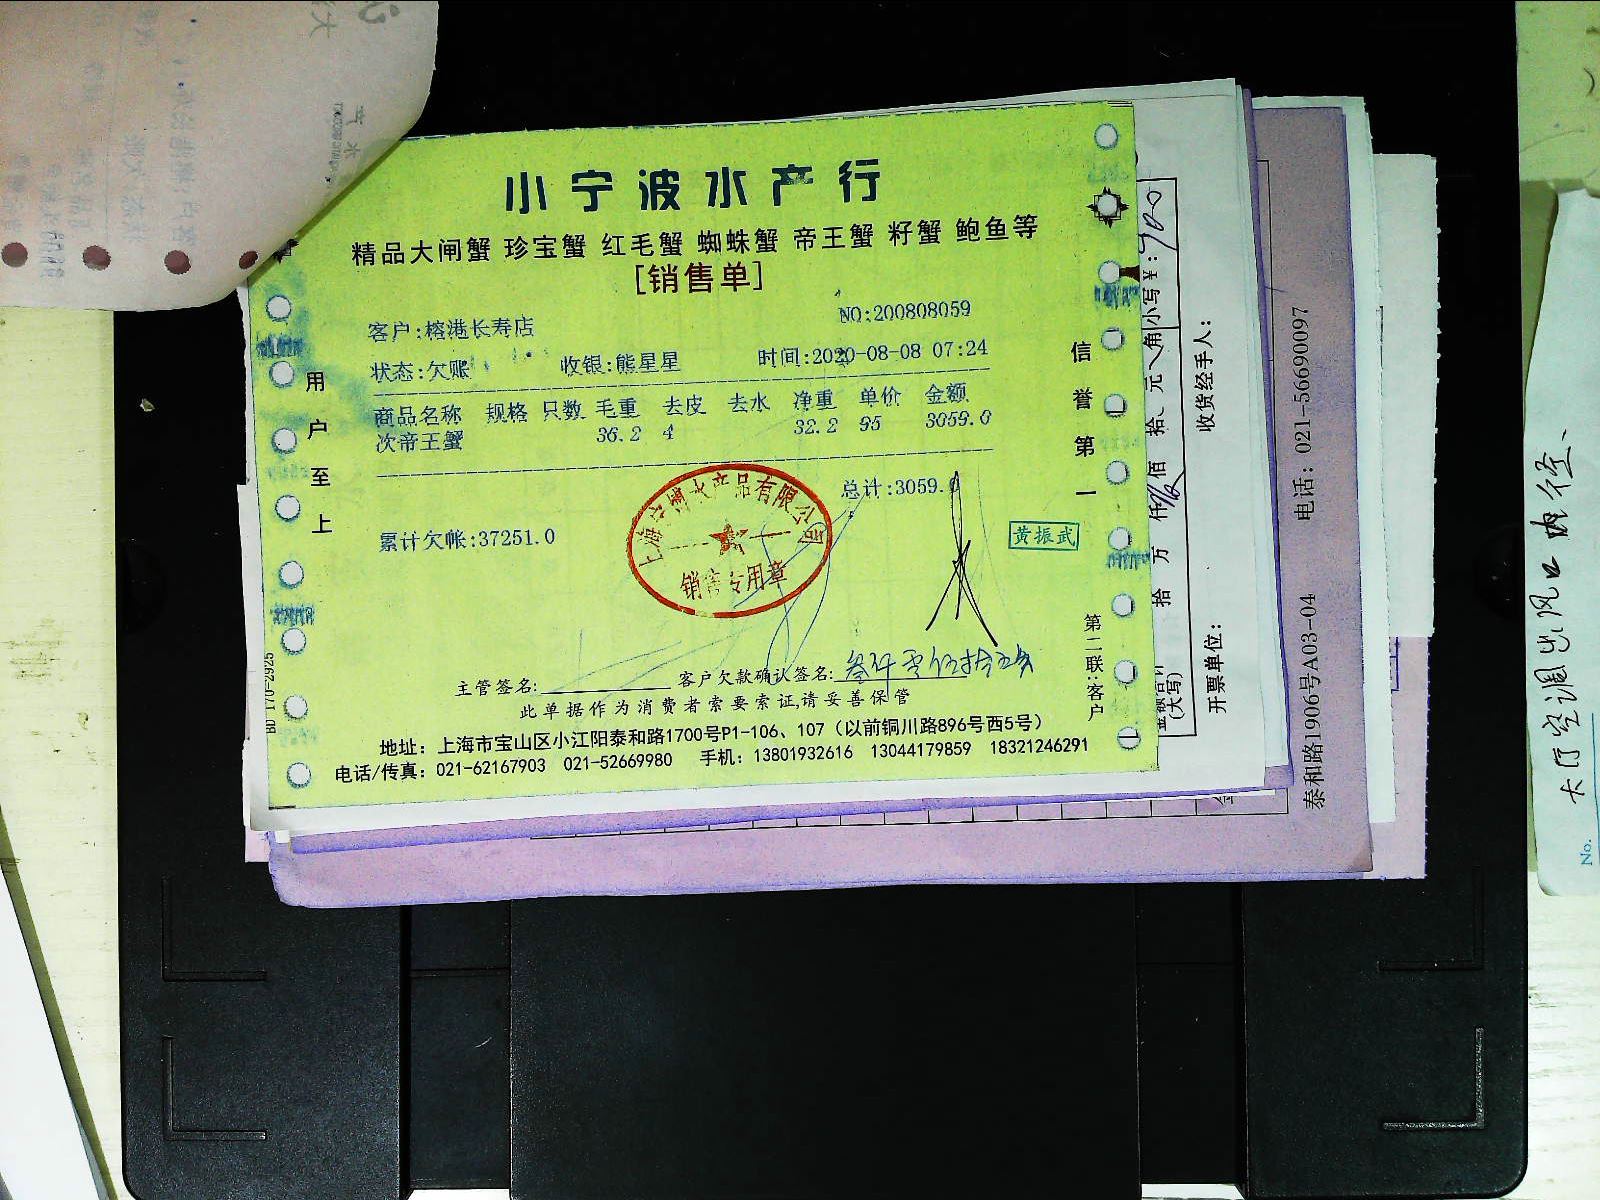 小宁波水产行
精品大闸蟹 珍宝蟹 红毛蟹 蜘蛛蟹 帝王蟹 籽蟹 鲍鱼等
[销售单]
客户:榕港长寿店 NO:200808059
状态:欠账 收银:熊星星 时间:2020-08-08 07:24
商品名称 规格 只数 毛重 去皮 去水 净重 单价 金额
次帝王蟹 36.2 4 32.2 95 3059.0
总计:3059.0
累计欠帐:37251.0
销售专用章
黄振武
用户至上
信誉第一
第二联:客户
主管签名: 客户欠款确认签名:叁仟零伍拾
此单据作为消费者索要索证,请妥善保管
地址：上海市宝山区小江阳泰和路1700号P1-106、107（以前铜川路896号西5号）
电话/传真：021-62167903 021-52669980 手机：13801932616 13044179859 18321246291
小写¥：
(大写)
万 仟 佰 拾 元 角
收货经手人：
开票单位：
泰和路1906号A03-04 电话：021-56690097
大厅空调出风口内径
No.